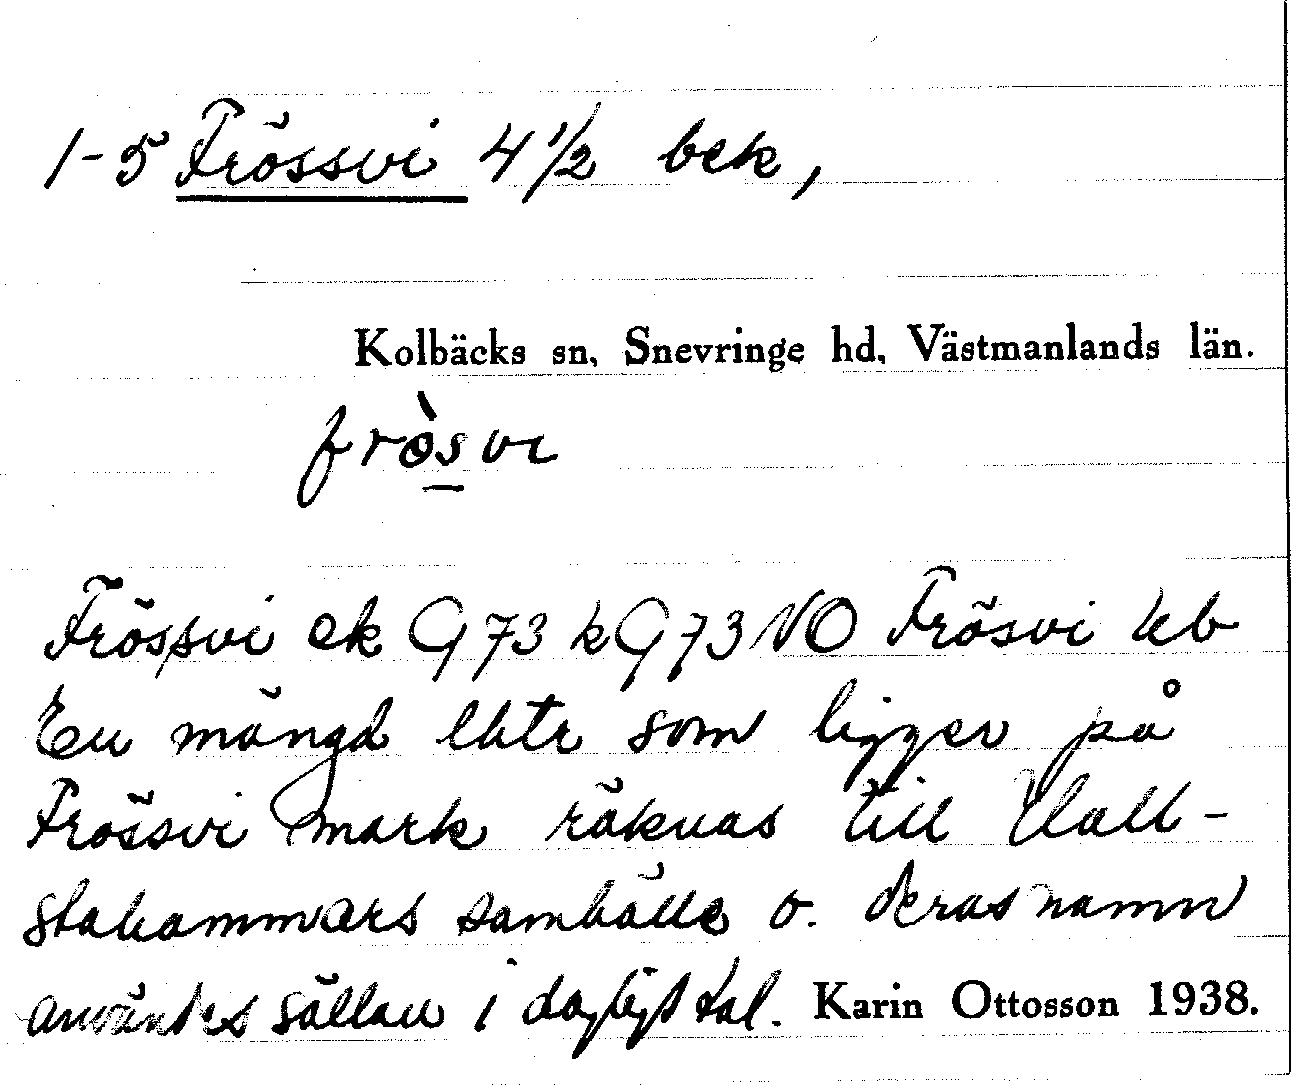 1-5 Frössvi 4 1/2 bek,
Kolbäcks sn, Snevringe hd, Västmanlands län.
fròsvi
Frössvi ek G 73 k G 73 NO Frösvi hb
En mängd lhtr som ligger på
Frössvi mark räknas till Hall-
stahammars samhälle o. deras namn
användes sällan i dagligt tal. Karin Ottosson 1938.